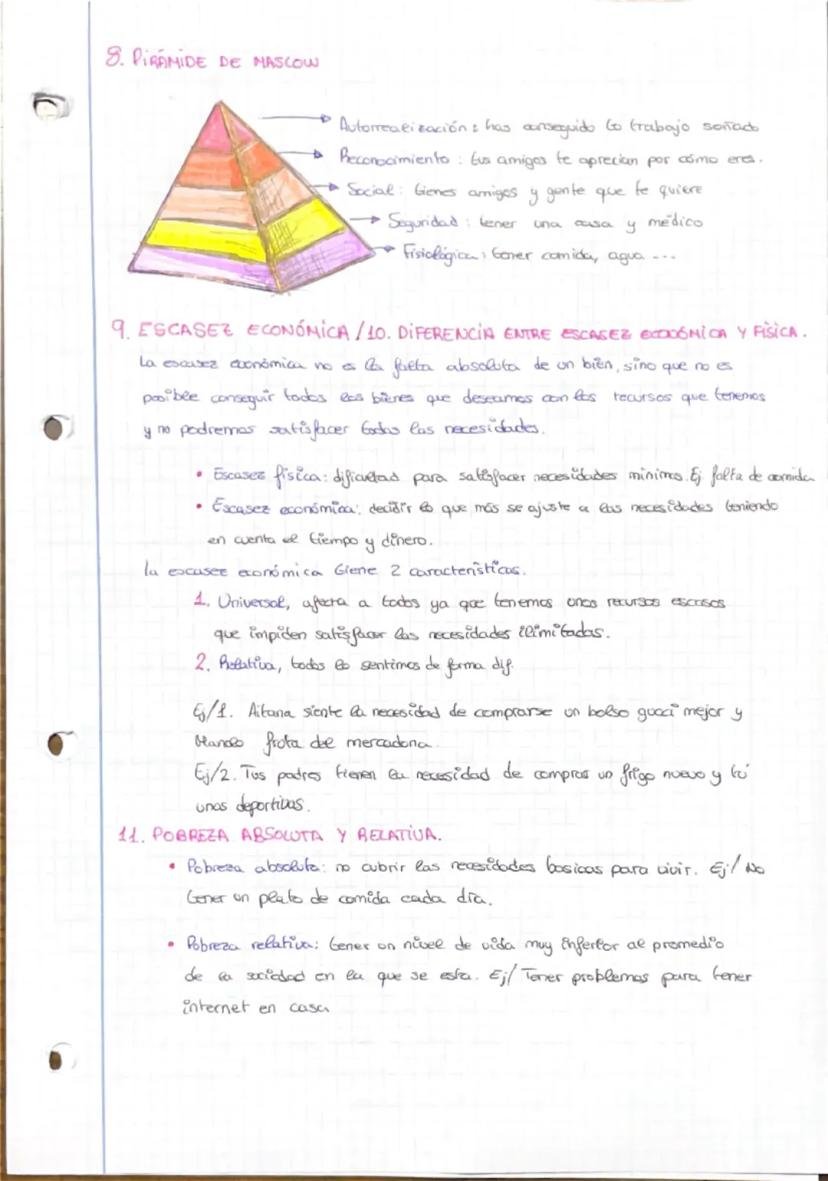 8. PIRÁMIDE DE MASLOW
Autorrealización: has conseguido tu trabajo soñado
Reconocimiento: tus amigos te aprecian por cómo eres.
Social: tienes amigos y gente que te quiere
Seguridad: tener una casa y médico
Fisiológica: tener comida, agua ...
9. ESCASEZ ECONÓMICA / 10. DIFERENCIA ENTRE ESCASEZ ECONÓMICA Y FÍSICA.
La escasez económica no es la falta absoluta de un bien, sino que no es
posible conseguir todos los bienes que deseamos con los recursos que tenemos
y no podremos satisfacer todas las necesidades.
• Escasez física: dificultad para satisfacer necesidades mínimas. Ej falta de comida
• Escasez económica: decidir lo que más se ajuste a las necesidades teniendo
en cuenta el tiempo y dinero.
la escasez económica tiene 2 características.
1. Universal, afecta a todos ya que tenemos unos recursos escasos
que impiden satisfacer las necesidades ilimitadas.
2. Relativa, todos lo sentimos de forma dif.
Ej/1. Aitana siente la necesidad de comprarse un bolso gucci mejor y
fruta del mercadona.
Ej/2. Tus padres tienen la necesidad de comprar un frigo nuevo y tú
unas deportivas.
11. POBREZA ABSOLUTA Y RELATIVA.
• Pobreza absoluta: no cubrir las necesidades basicas para vivir. Ej/ No
tener un plato de comida cada día.
• Pobreza relativa: tener un nivel de vida muy inferior al promedio
de la sociedad en la que se esta. Ej/ Tener problemas para tener
internet en casa